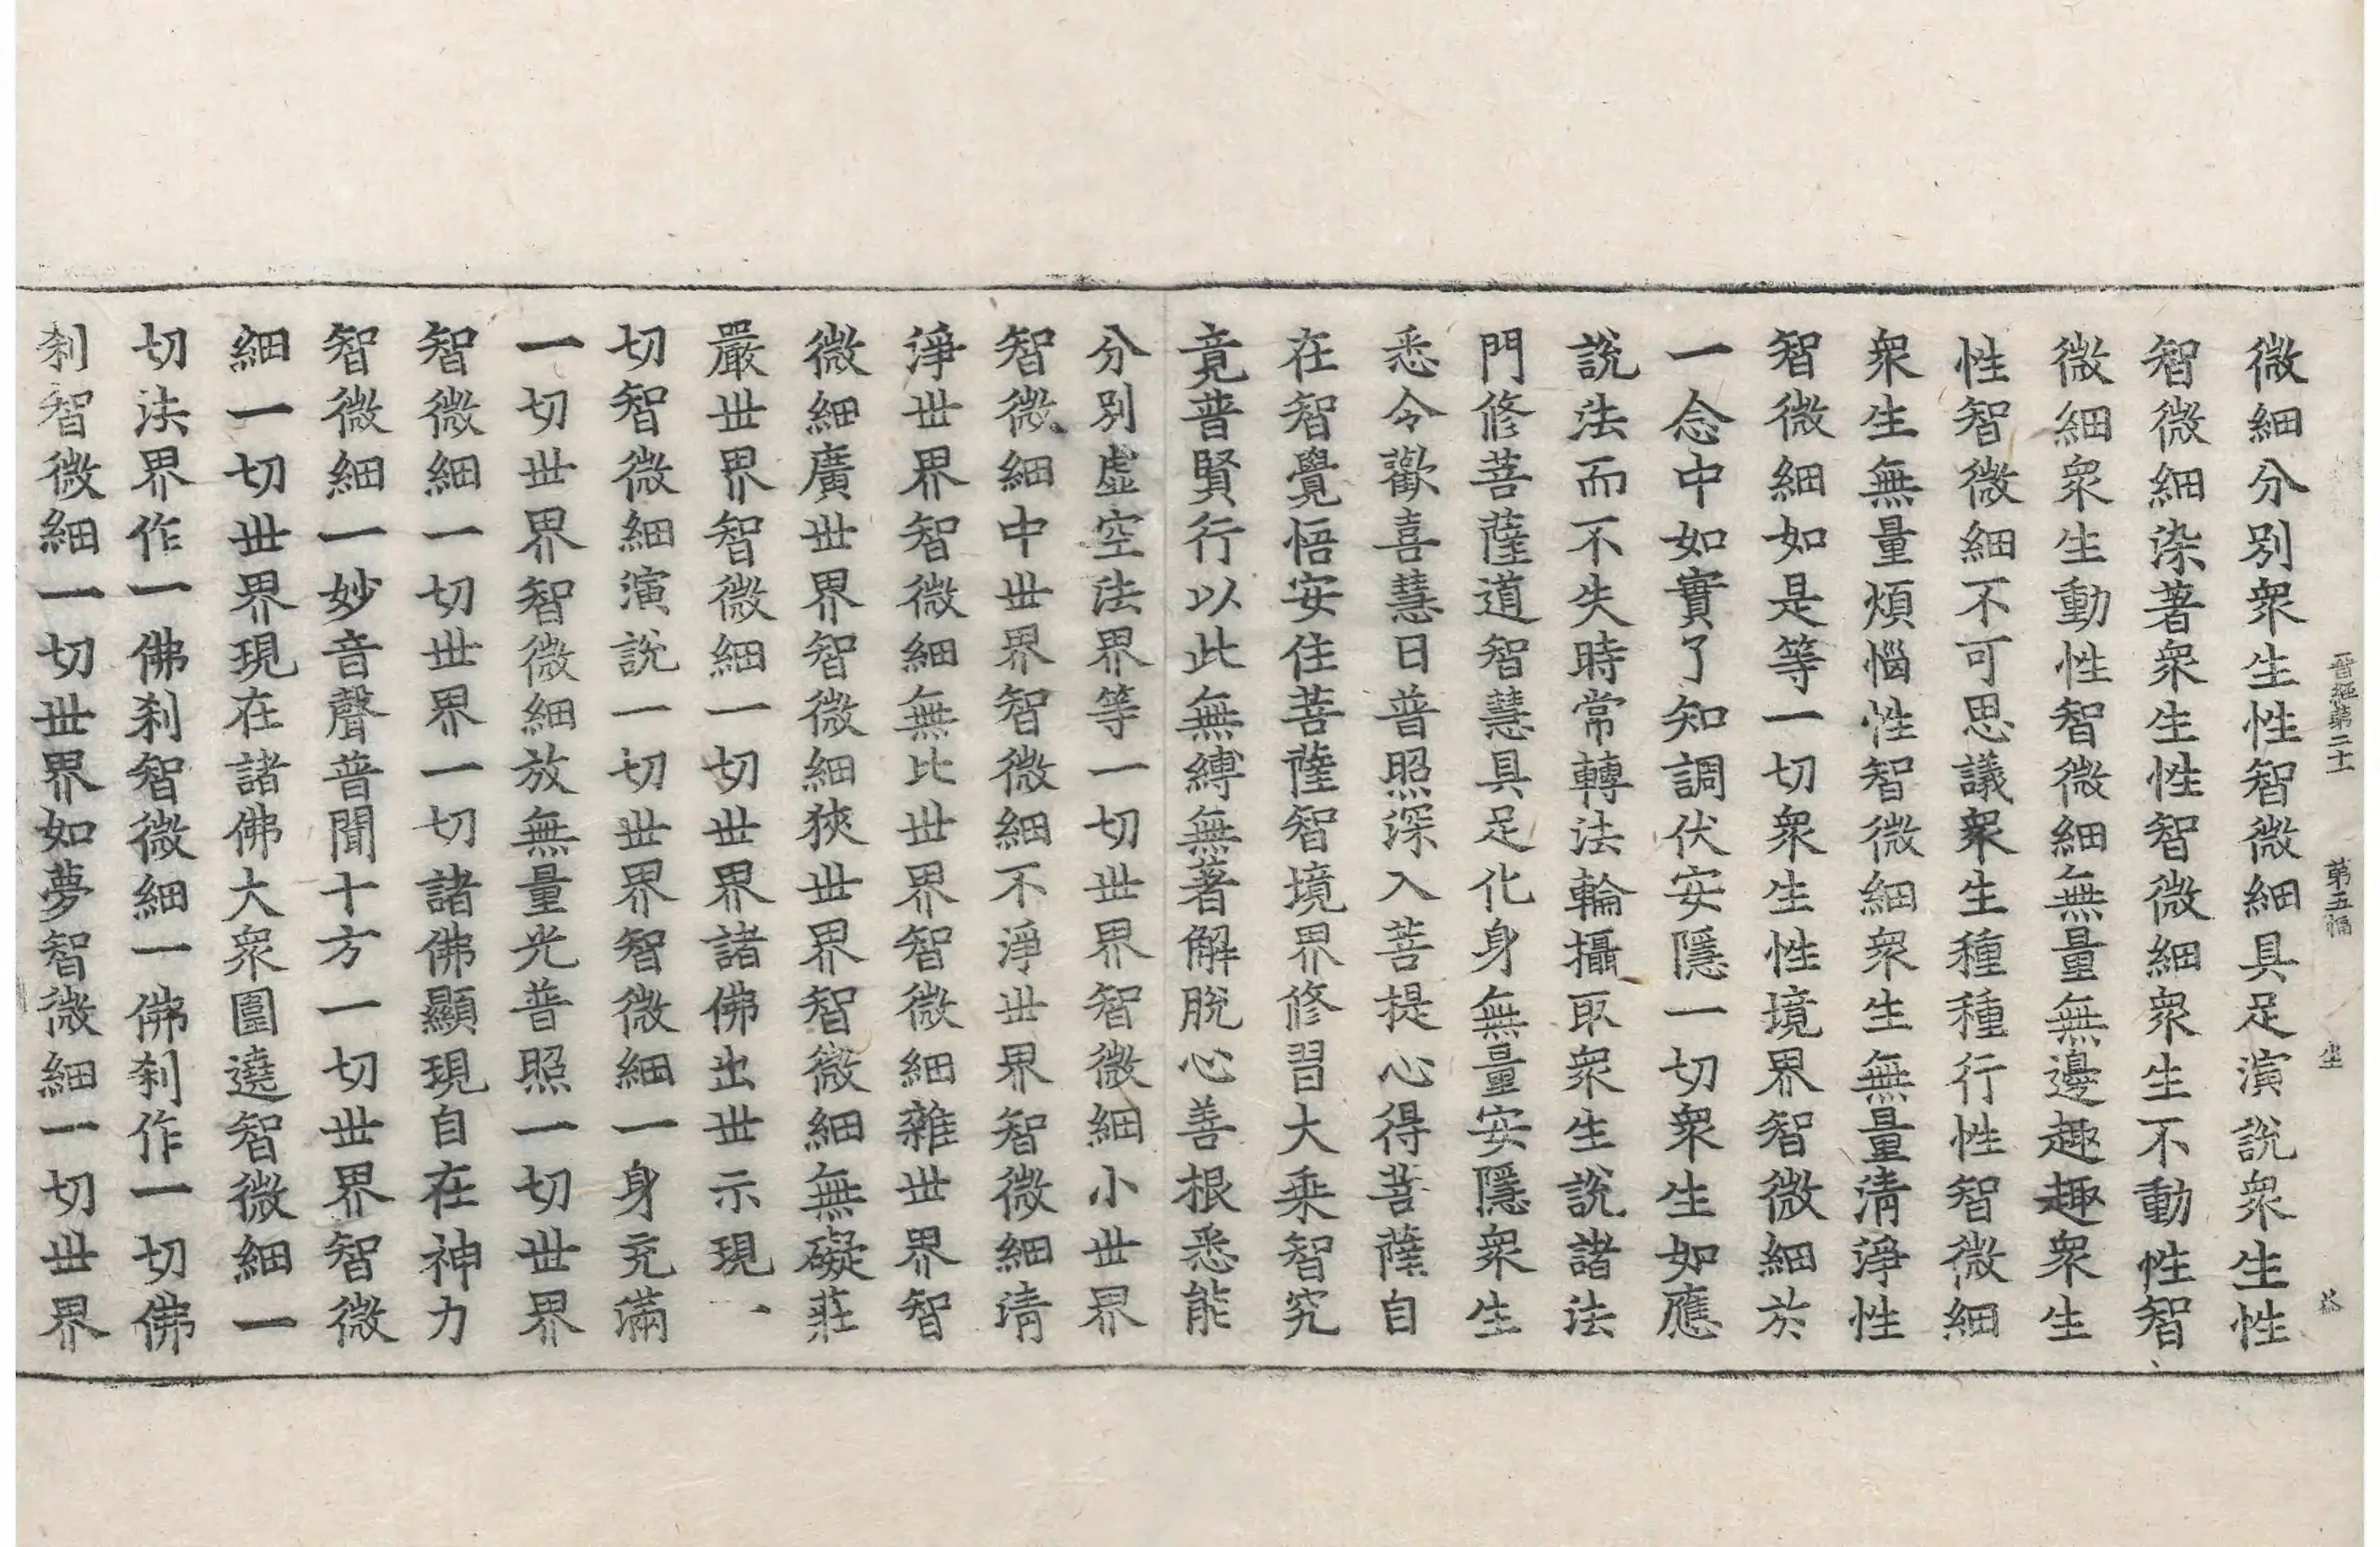 晉經第二十一 第五幅 坐
微細分別衆生性智微細具足演說衆生性
智微細染著衆生性智微細衆生不動性智
微細衆生動性智微細無量無邊趣趣衆生
性智微細不可思議衆生種種行性智微細
衆生無量煩惱性智微細衆生無量淸淨性
智微細如是等一切衆生性境界智微細於
一念中如實了知調伏安隱一切衆生如應
說法而不失時常轉法輪攝取衆生說諸法
門修菩薩道智慧具足化身無量安隱衆生
悉令歡喜慧日普照深入菩提心得菩薩自
在智覺悟安住菩薩智境界修習大乘智究
竟普賢行以此無縛無著解脫心善根悉能
分別虛空法界等一切世界智微細小世界
智微細中世界智微細不淨世界智微細淸
淨世界智微細無比世界智微細雜世界智
微細廣世界智微細狹世界智微細無礙莊
嚴世界智微細一切世界諸佛出世示現
切智微細演說一切世界智微細一身充滿
一切世界智微細放無量光普照一切世界
智微細一切世界一切諸佛顯現自在神力
智微細一妙音聲普聞十方一切世界智微
細一切世界現在諸佛大衆圍遶智微細一
切法界作一佛刹智微細一佛刹作一切佛
刹智微細一切世界如夢智微細一切世界